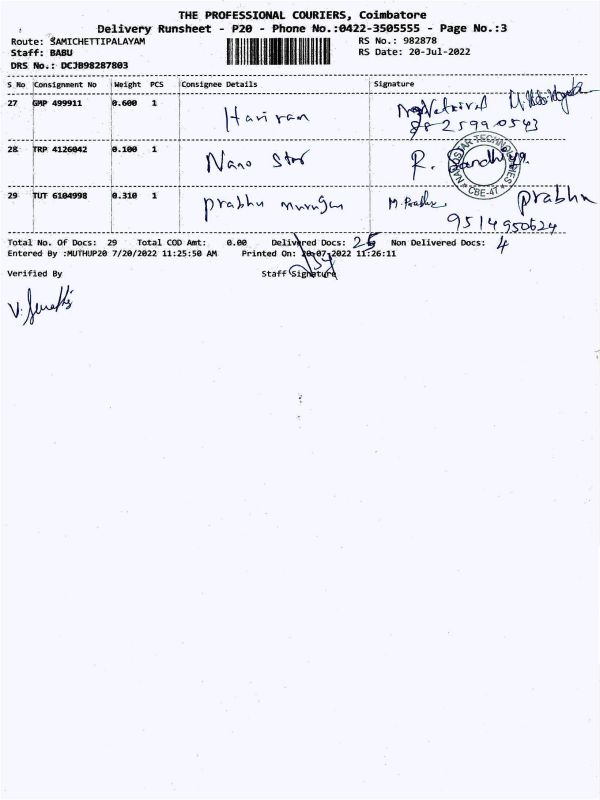 THE PROFESSIONAL COURIERS, Coimbatore
Delivery Runsheet - P20 - Phone No.:0422-3505555 - Page No.:3
Route: SAMICHETTIPALAYAM RS No.: 982878
Staff: BABU RS Date: 20-Jul-2022
DRS No.: DCJB98287803
S No Consignment No Weight PCS Consignee Details Signature
27 GMP 499911 0.600 1 Hariram
28 TRP 4126042 0.100 1 Nano Star R.
NANOSTAR TECHNOLOGIES
CBE-47
29 TUT 6104998 0.310 1 prabhu murugan M. Prabhu prabhu
9514950624
Total No. Of Docs: 29 Total COD Amt: 0.00 Delivered Docs: 25 Non Delivered Docs: 4
Entered By :MUTHUP20 7/20/2022 11:25:50 AM Printed On: 20-07-2022 11:26:11
Verified By Staff Signature